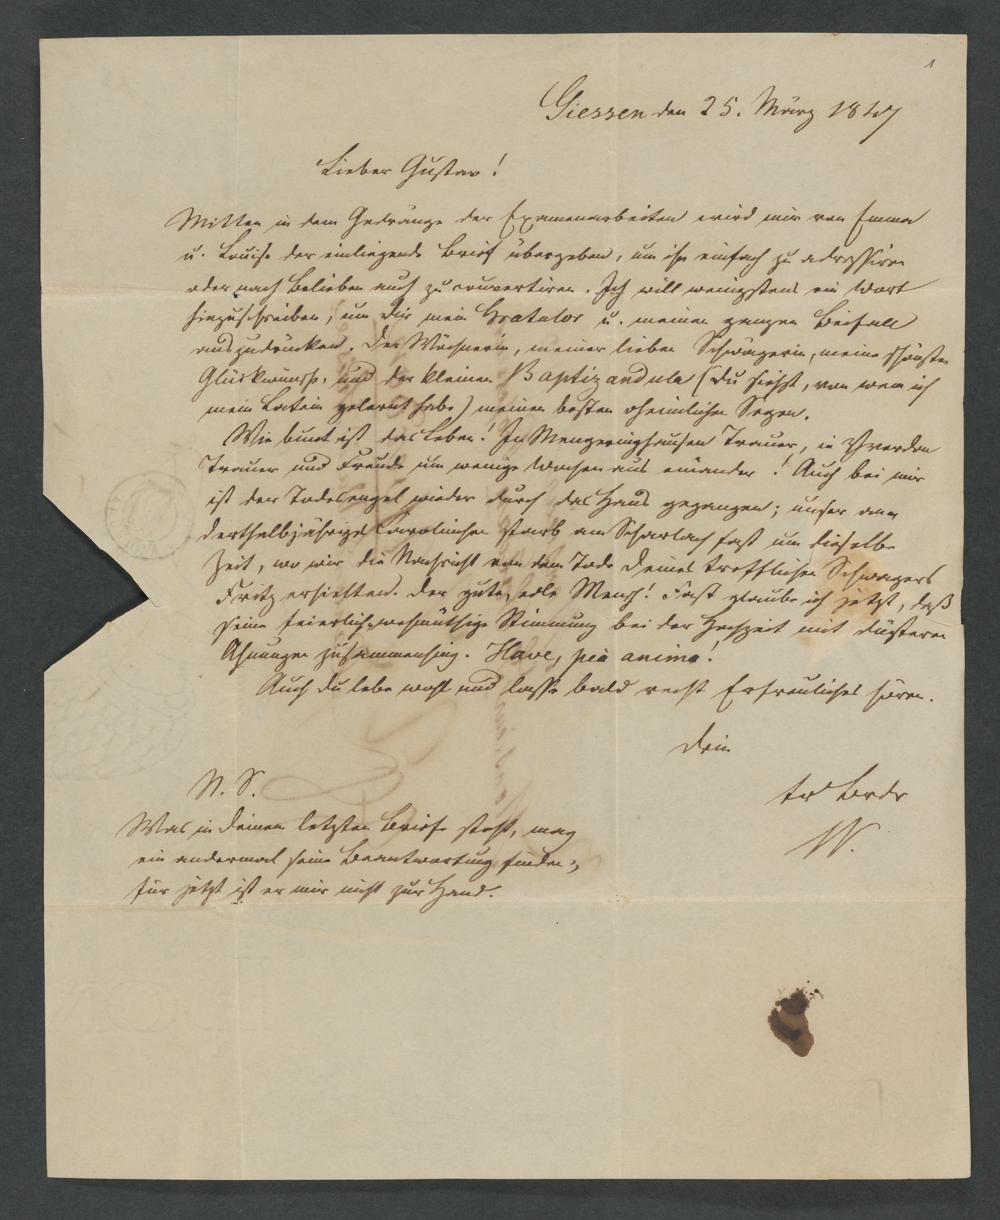 1
Giessen den 25. März 1847
Lieber Gustav!
Mitten in dem Gedränge der Examenarbeiten wird mir von Emma
u. Louise der einliegende Brief übergeben, um ihn einfach zu adressiren
oder nach Belieben auch zu couvertiren. Ich will wenigstens ein Wort
hinzuschreiben, um Dir mein Gratulor u. meinen ganzen Beifall
auszudrücken. Der Wöchnerin, meiner lieben Schwägerin, meine schönsten
Glückwünsche, und der kleinen Baptizandula (Du siehst, von wem ich
mein Latein gelernt habe) meinen besten oheimlichen Segen.
Wie bunt ist das Leben! In Mengeringhausen Trauer, in Yverdon
Trauer und Freude um wenige Wochen aus einander! Auch bei mir
ist der Todesengel wieder durch das Haus gegangen; unser
derthalbjähriges Carolinchen starb am Scharlach fast um dieselbe
Zeit, wo wir die Nachricht von dem Tode Deines trefflichen Schwagers
Fritz erhielten. Der gute, edle Mensch! Fast glaube ich jetzt, daß
seine feierlich-wehmüthige Stimmung bei der Hochzeit mit düsteren
Ahnungen zusammenhing. Have, pia anima!
Auch Du lebe wohl und lasse bald recht Erfreuliches hören.
Dein
tr Brdr
W.
N. S.
Was in Deinem letzten Briefe steht, mag
ein andermal seine Beantwortung finden;
für jetzt ist er mir nicht zur Hand.